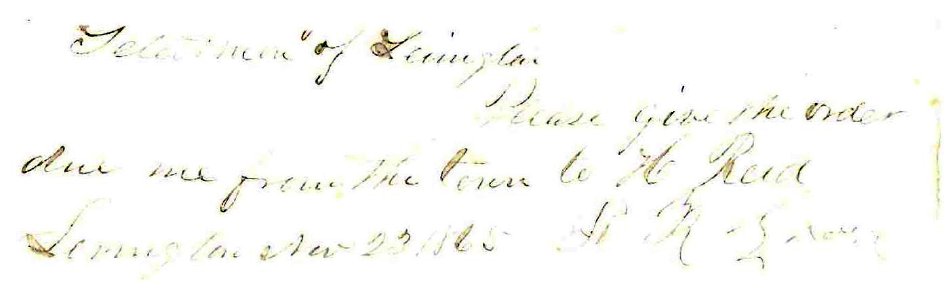 Selectmen of Lexington
Please give the order
due me from the town to H Reed
Lexington Nov 23 1865